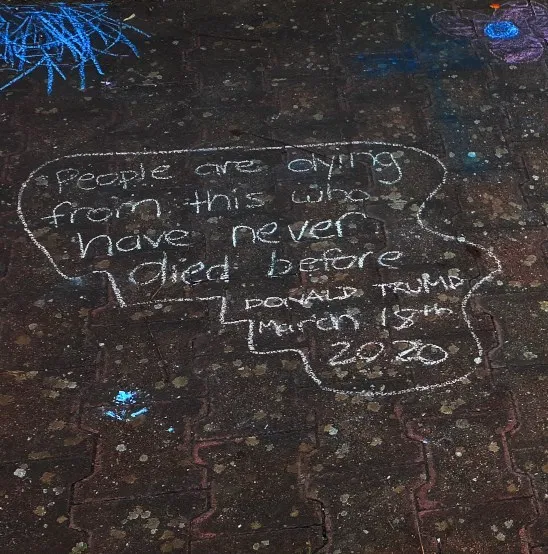 People are dying
from this who
have never
died before
DONALD TRUMP
March 18th
2020